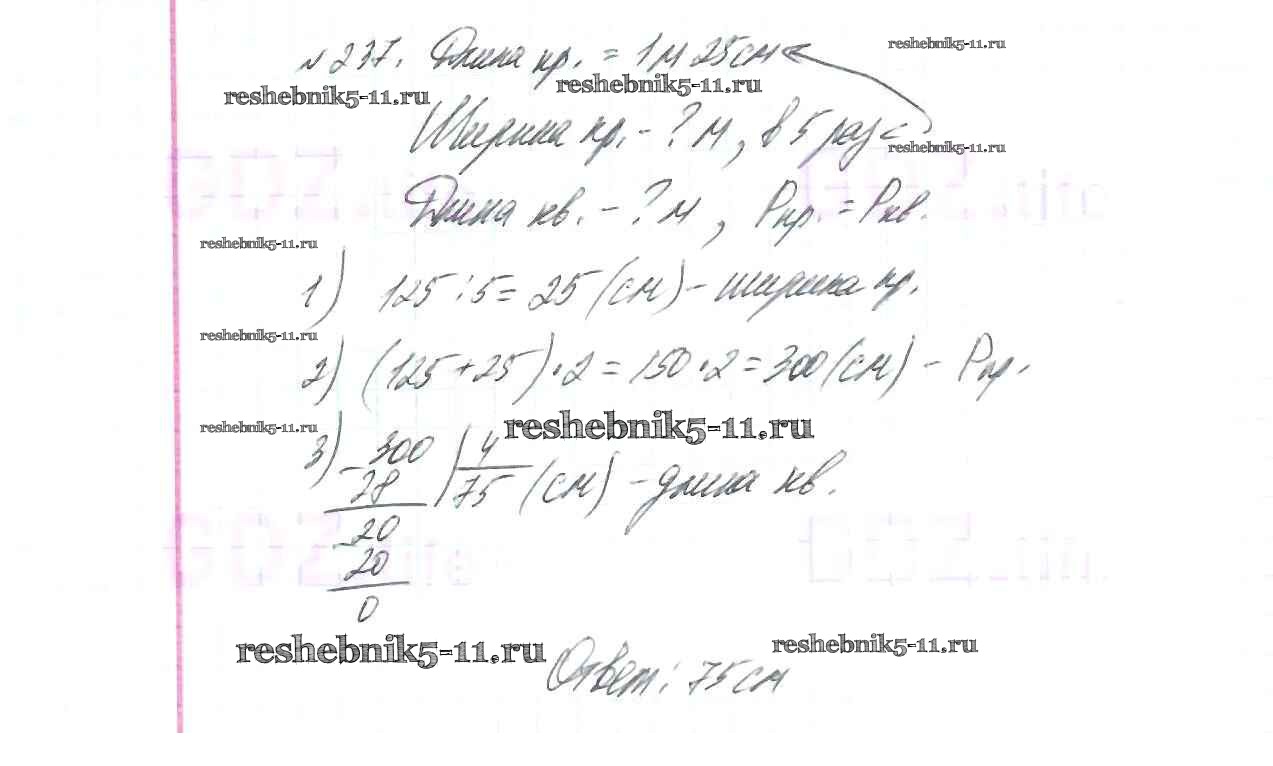 № 237. Длина пр. = 1м 25см
reshebnik5-11.ru
reshebnik5-11.ru
reshebnik5-11.ru
Ширина пр. - ? м, в 5 раз <
reshebnik5-11.ru
Длина кв. - ? м, Pпр. = Pкв.
reshebnik5-11.ru
1) 125 : 5 = 25 (см) - ширина пр.
reshebnik5-11.ru
2) (125 + 25) · 2 = 150 · 2 = 300 (см) - Pпр.
reshebnik5-11.ru
reshebnik5-11.ru
3) 300 | 4
- 28 | 75 (см) - длина кв.
- 20
20
0
reshebnik5-11.ru
reshebnik5-11.ru
Ответ: 75 см